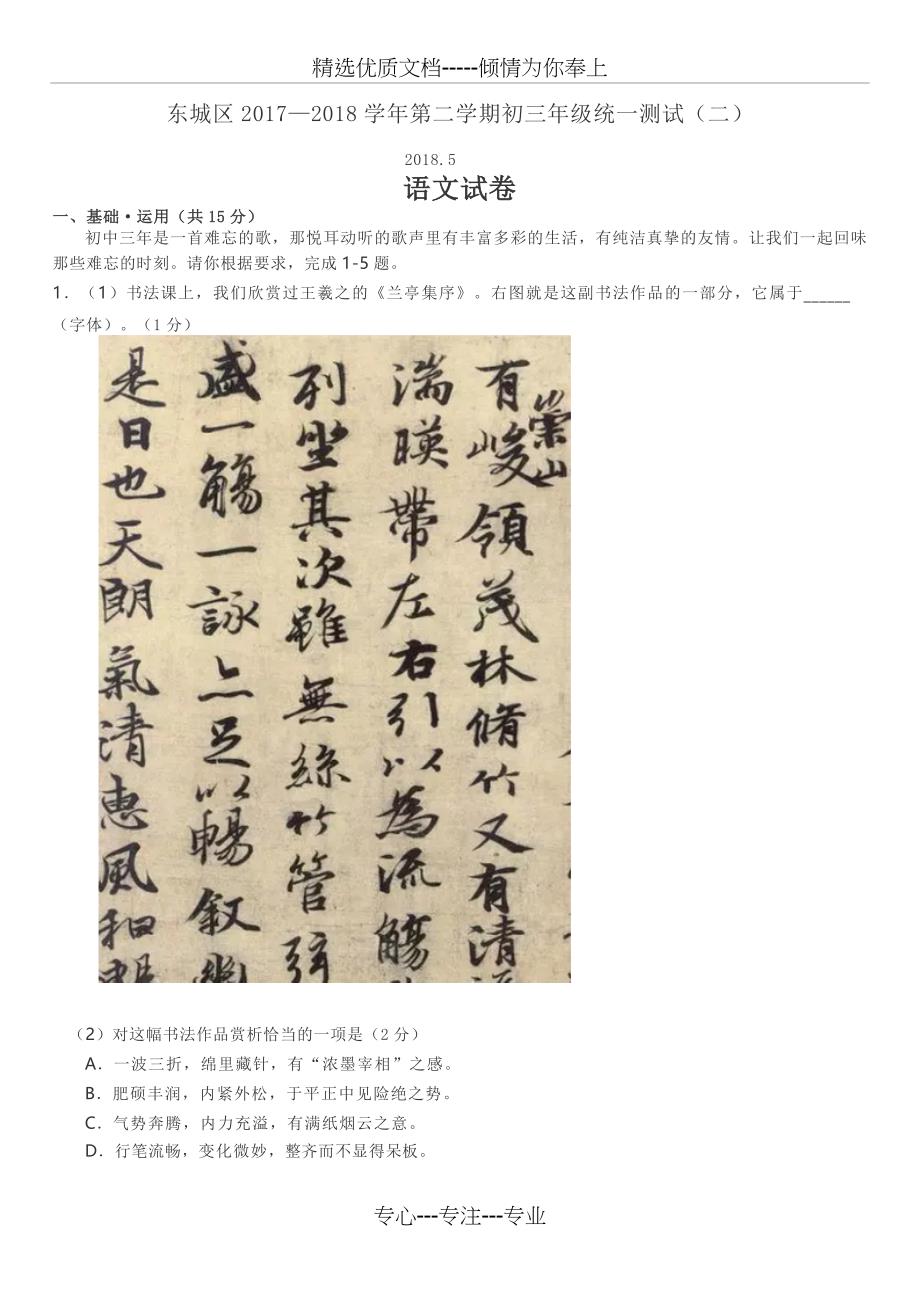 精选优质文档-----倾情为你奉上
东城区 2017—2018 学年第二学期初三年级统一测试（二）
2018.5
语文试卷
一、基础·运用（共 15 分）
初中三年是一首难忘的歌，那悦耳动听的歌声里有丰富多彩的生活，有纯洁真挚的友情。让我们一起回味
那些难忘的时刻。请你根据要求，完成 1-5 题。
1．（1）书法课上，我们欣赏过王羲之的《兰亭集序》。右图就是这副书法作品的一部分，它属于______
（字体）。（1 分）
有崇山峻領茂林脩竹又有清
湍暎帶左右引以為流觴
列坐其次雖無絲竹管弦
盛一觴一詠亦足以暢叙幽
是日也天朗氣清惠風和暢
（2）对这幅书法作品赏析恰当的一项是（2 分）
A．一波三折，绵里藏针，有“浓墨宰相”之感。
B．肥硕丰润，内紧外松，于平正中见险绝之势。
C．气势奔腾，内力充溢，有满纸烟云之意。
D．行笔流畅，变化微妙，整齐而不显得呆板。
专心---专注---专业